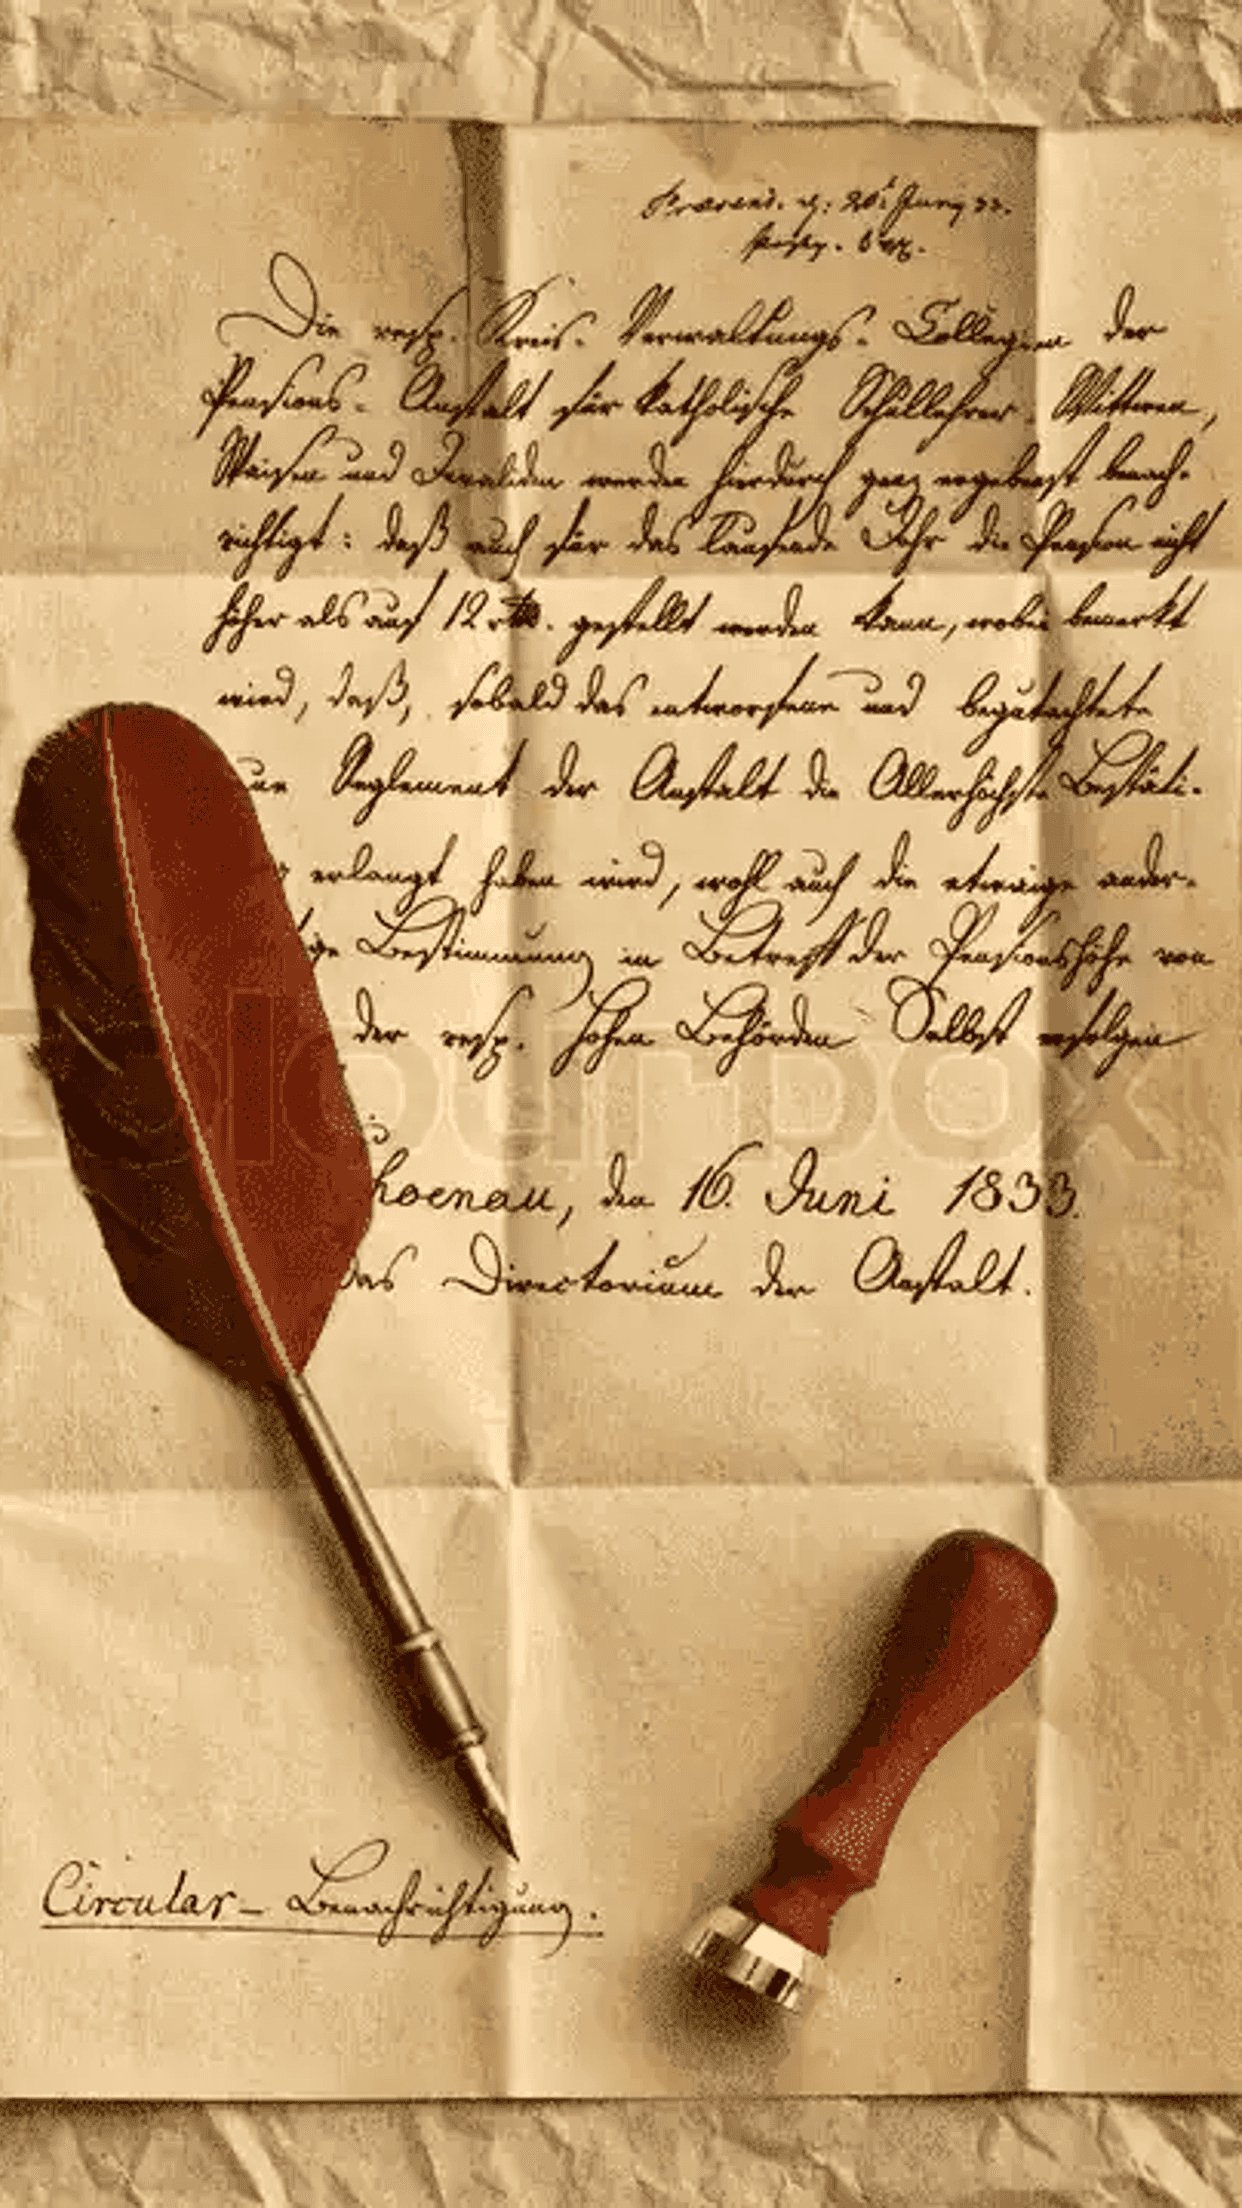 Praesent. d: 20t Juny 33.
Die resp. Kreis-Verwaltungs-Collegien der
Pensions-Anstalt für katholische Schullehrer-Wittwen,
Waisen und Invaliden werden hierdurch ganz ergebenst benach-
richtigt: daß auch für das laufende Jahr die Pension nicht
höher als auf 12 rtlr. gestellt werden kann, wobei bemerkt
wird, daß, sobald das entworfene und begutachtete
ue Reglement der Anstalt die Allerhöchste Bestäti-
g erlangt haben wird, wohl auch die etwaige ander-
ige Bestimmung in Betreff der Pensionshöhe von
der resp. hohen Behörden Selbst erfolgen
hoenau, den 16. Juni 1833.
Das Directorium der Anstalt.
Circular-Benachrichtigung.
colourbox